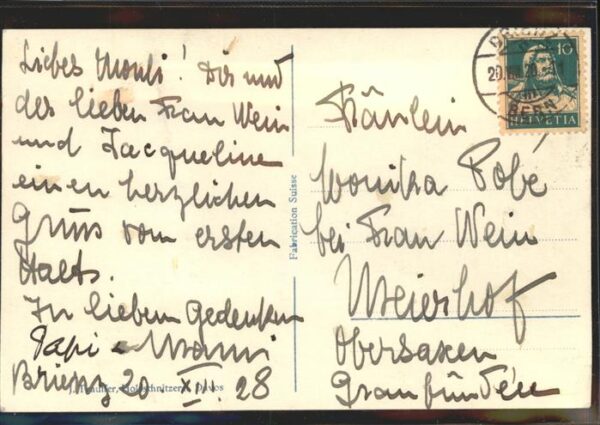 Liebes Monli! Dir und
der lieben Frau Wein
und Jacqueline
einen herzlichen
Gruss vom ersten
Halts.
In liebem Gedenken
Papi & Mami
Brienz 20. XII. 28
Fabrication Suisse
10
HELVETIA
BERN
Fräulein
Monika Pobé
bei Frau Wein
Meierhof
Obersaxen
Graubünden